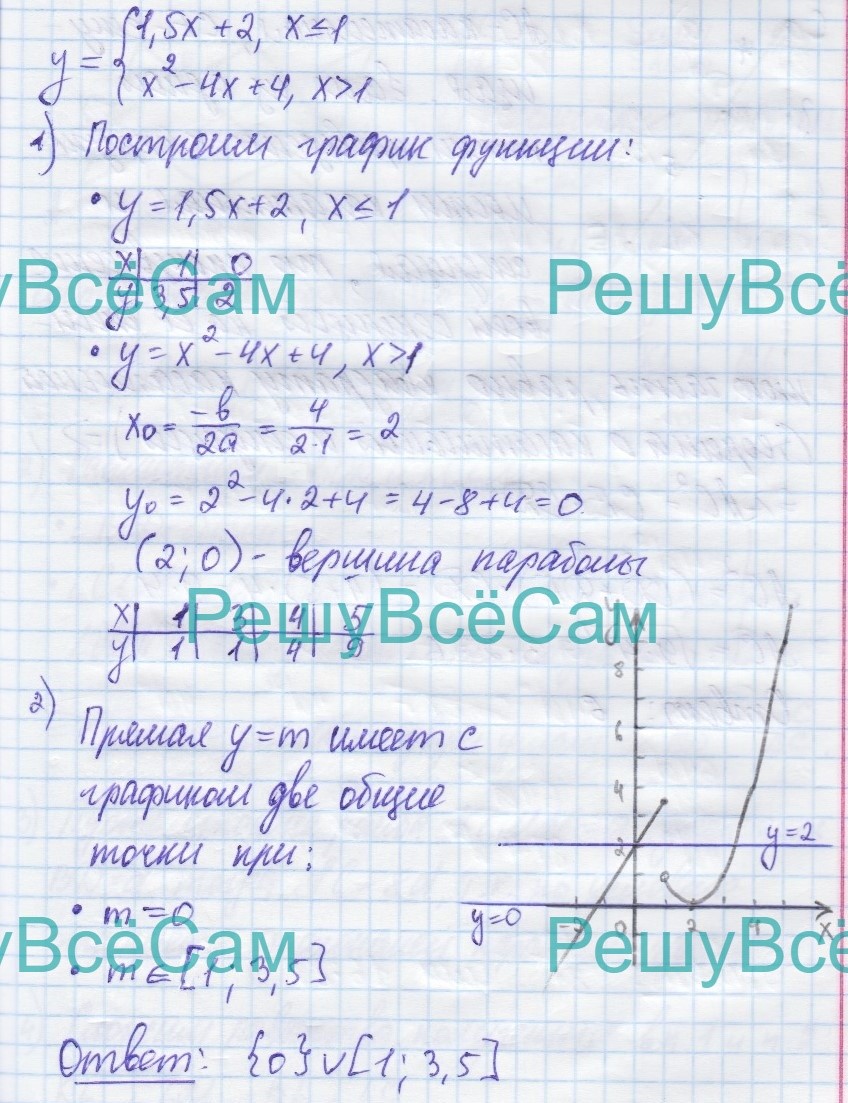 y = { 1,5x + 2, x ≤ 1
x² - 4x + 4, x > 1
1) Построим график функции:
• y = 1,5x + 2, x ≤ 1
x | 1 | 0
y | 3,5 | 2
РешуВсёСам РешуВсё
• y = x² - 4x + 4, x > 1
x₀ = -b/2a = 4/2·1 = 2
y₀ = 2² - 4·2 + 4 = 4 - 8 + 4 = 0
(2; 0) - вершина параболы
x | 1 | 3 | 4 | 5
y | 1 | 1 | 4 | 9
РешуВсёСам
y
8
6
4
2
y = 2
y = 0
-2 0 2 4 x
2) Прямая y = m имеет с
графиком две общие
точки при:
• m = 0
• m ∈ [1; 3,5]
уВсёСам РешуВсё
Ответ: {0} ∪ [1; 3,5]